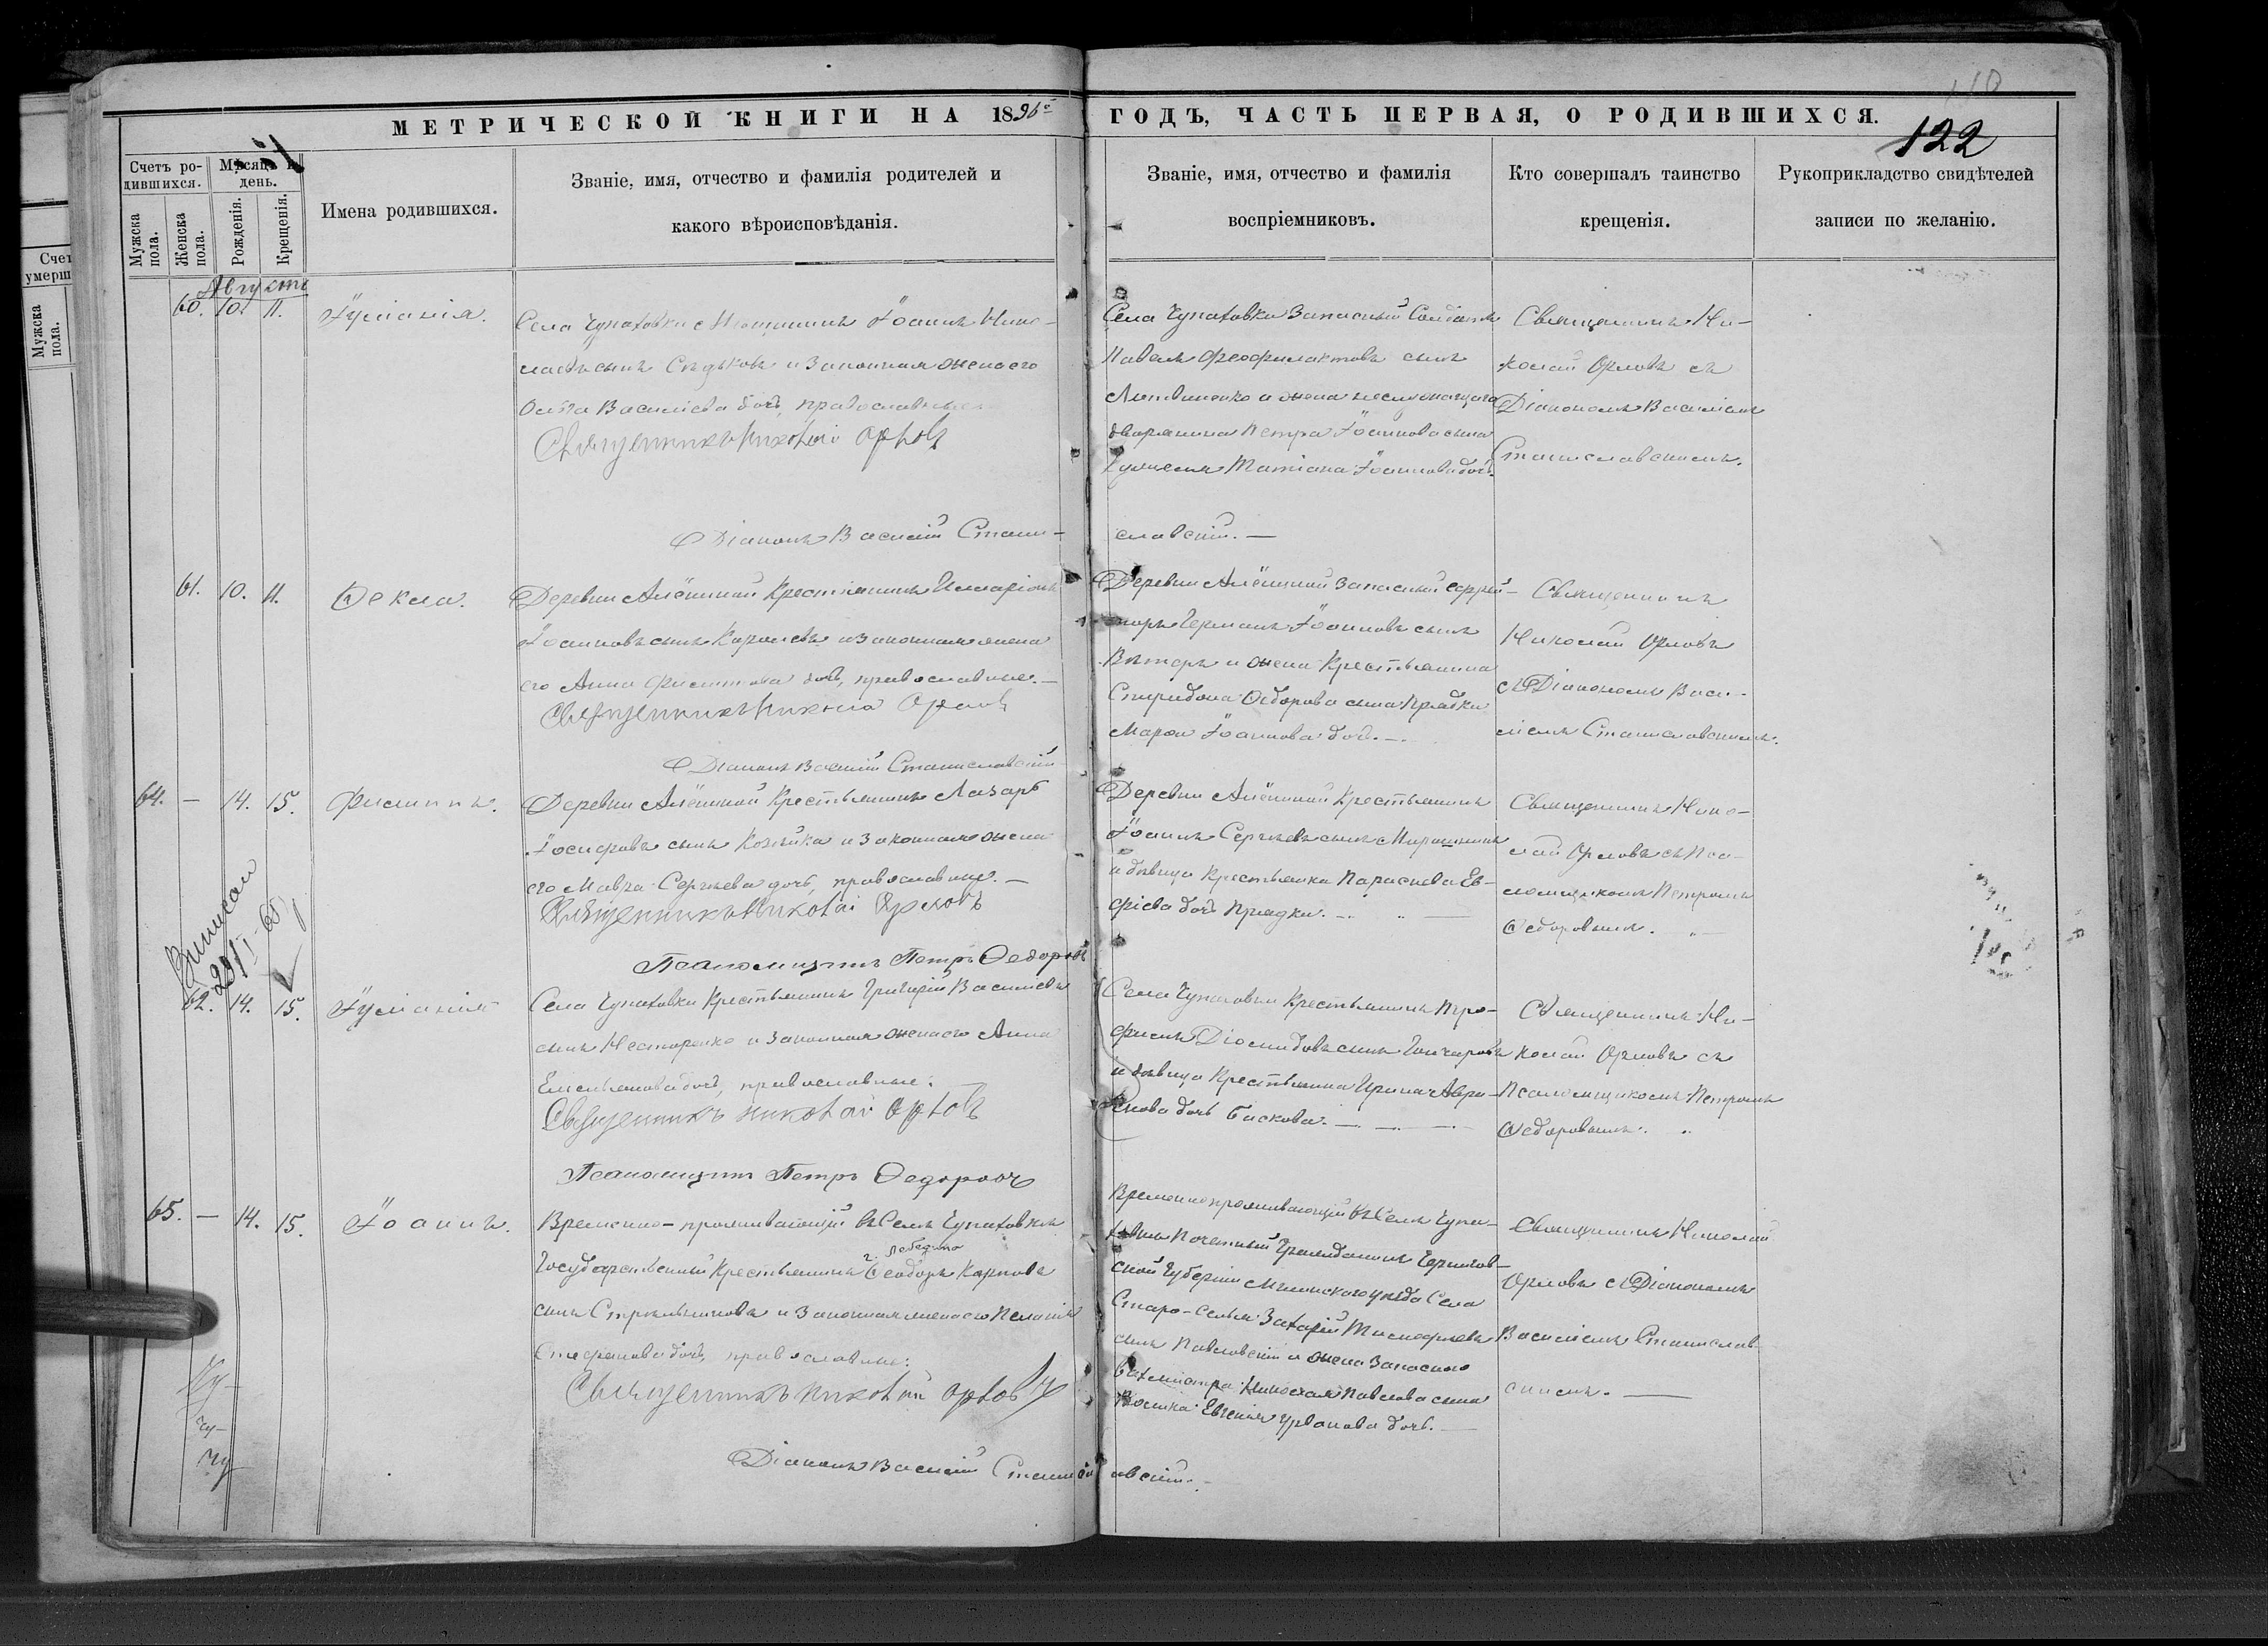 110
МЕТРИЧЕСКОЙ КНИГИ НА 1896 ГОДЪ, ЧАСТЬ ПЕРВАЯ, О РОДИВШИХСЯ.
122
Счетъ родившихся.
Мѣсяцъ и день.
Мужска пола.
Женска пола.
Рожденія.
Крещенія.
Имена родившихся.
Званіе, имя, отчество и фамилія родителей и
какого вѣроисповѣданія.
Званіе, имя, отчество и фамилія
воспріемниковъ.
Кто совершалъ таинство
крещенія.
Рукоприкладство свидѣтелей
записи по желанію.
Августъ
60. 10. 11. Іуліанія.
Села Чупаховки Мѣщанинъ Іоаннъ Нико-
лаевъ сынъ Сѣдьковъ и законная жена его
Васильева дочь, православные
Священникъ Николай Орловъ
Села Чупаховки Запасный Солдатъ
Павелъ Феофилактовъ сынъ
Литвиненко и жена неслужащаго
дворянина Петра Іоаннова сына
Татіана Іоаннова дочь.
Священникъ Ни-
колай Орловъ съ
Діакономъ Василіемъ
Станиславскимъ.
Діаконъ Василій Стани-
славскій. —
61. 10. 11. Ѳекла.
Деревни Алёшиной Крестьянинъ Илларіонъ
Іоанновъ сынъ Королевъ и законная жена
его Анна Филиппова дочь, православные. —
Священникъ Николай Орловъ
Деревни Алёшиной Запасный Ефрей-
торъ Германъ Іоанновъ сынъ
Вѣтеръ и жена Крестьянина
Спиридона Ѳедорова сына Прядки
Марѳа Іоаннова дочь. —
Священникъ
Николай Орловъ
съ Діакономъ Васи-
ліемъ Станиславскимъ.
Діаконъ Василій Станиславскій
64. — 14. 15. Филиппъ.
Деревни Алёшиной Крестьянинъ Лазарь
Іосифовъ сынъ Козейка и законная жена
его Мавра Сергѣева дочь, православные. —
Священникъ Николай Орловъ
Деревни Алёшиной Крестьянинъ
Іоаннъ Сергѣевъ сынъ Мирошникъ
и дѣвица Крестьянка Параскева Ев-
фіева дочь Прядки. —
Священникъ Нико-
лай Орловъ съ Пса-
ломщикомъ Петромъ
Ѳедоровымъ. —
Псаломщикъ Петръ Ѳедоровъ
62. 14. 15. Іуліанія
Села Чупаховки Крестьянинъ Григорій Васильевъ
сынъ Нестеренко и законная жена его Анна
Емельянова дочь, православные.
Священникъ Николай Орловъ
Села Чупаховки Крестьянинъ Про-
филъ Діомидовъ сынъ Гончаровъ
и дѣвица Крестьянка Ирина Авра-
мова дочь Бискова. —
Священникъ Ни-
колай Орловъ съ
Псаломщикомъ Петромъ
Ѳедоровымъ.
Псаломщикъ Петръ Ѳедоровъ
65. — 14. 15. Іоаннъ.
Временно-проживающій въ Селѣ Чупаховкѣ
г. Лебедина
Государственный Крестьянинъ Ѳеодоръ Карповъ
сынъ Стрѣльниковъ и законная жена его Пелагія
Стефанова дочь, православные:
Священникъ Николай Орловъ
Временно проживающій въ Селѣ Чупа-
ховкѣ Почетный Гражданинъ Чернигов-
ской Губерніи Мглинскаго уѣзда Села
Старо-Селья Захарій Тимофеевъ
сынъ Павловскій и жена Запаснаго
вахмистра Николая Павлова сына
Евгенія Урванова дочь. —
Священникъ Николай
Орловъ съ Діакономъ
Василіемъ Станислав-
скимъ. —
Діаконъ Василій Станиславскій.